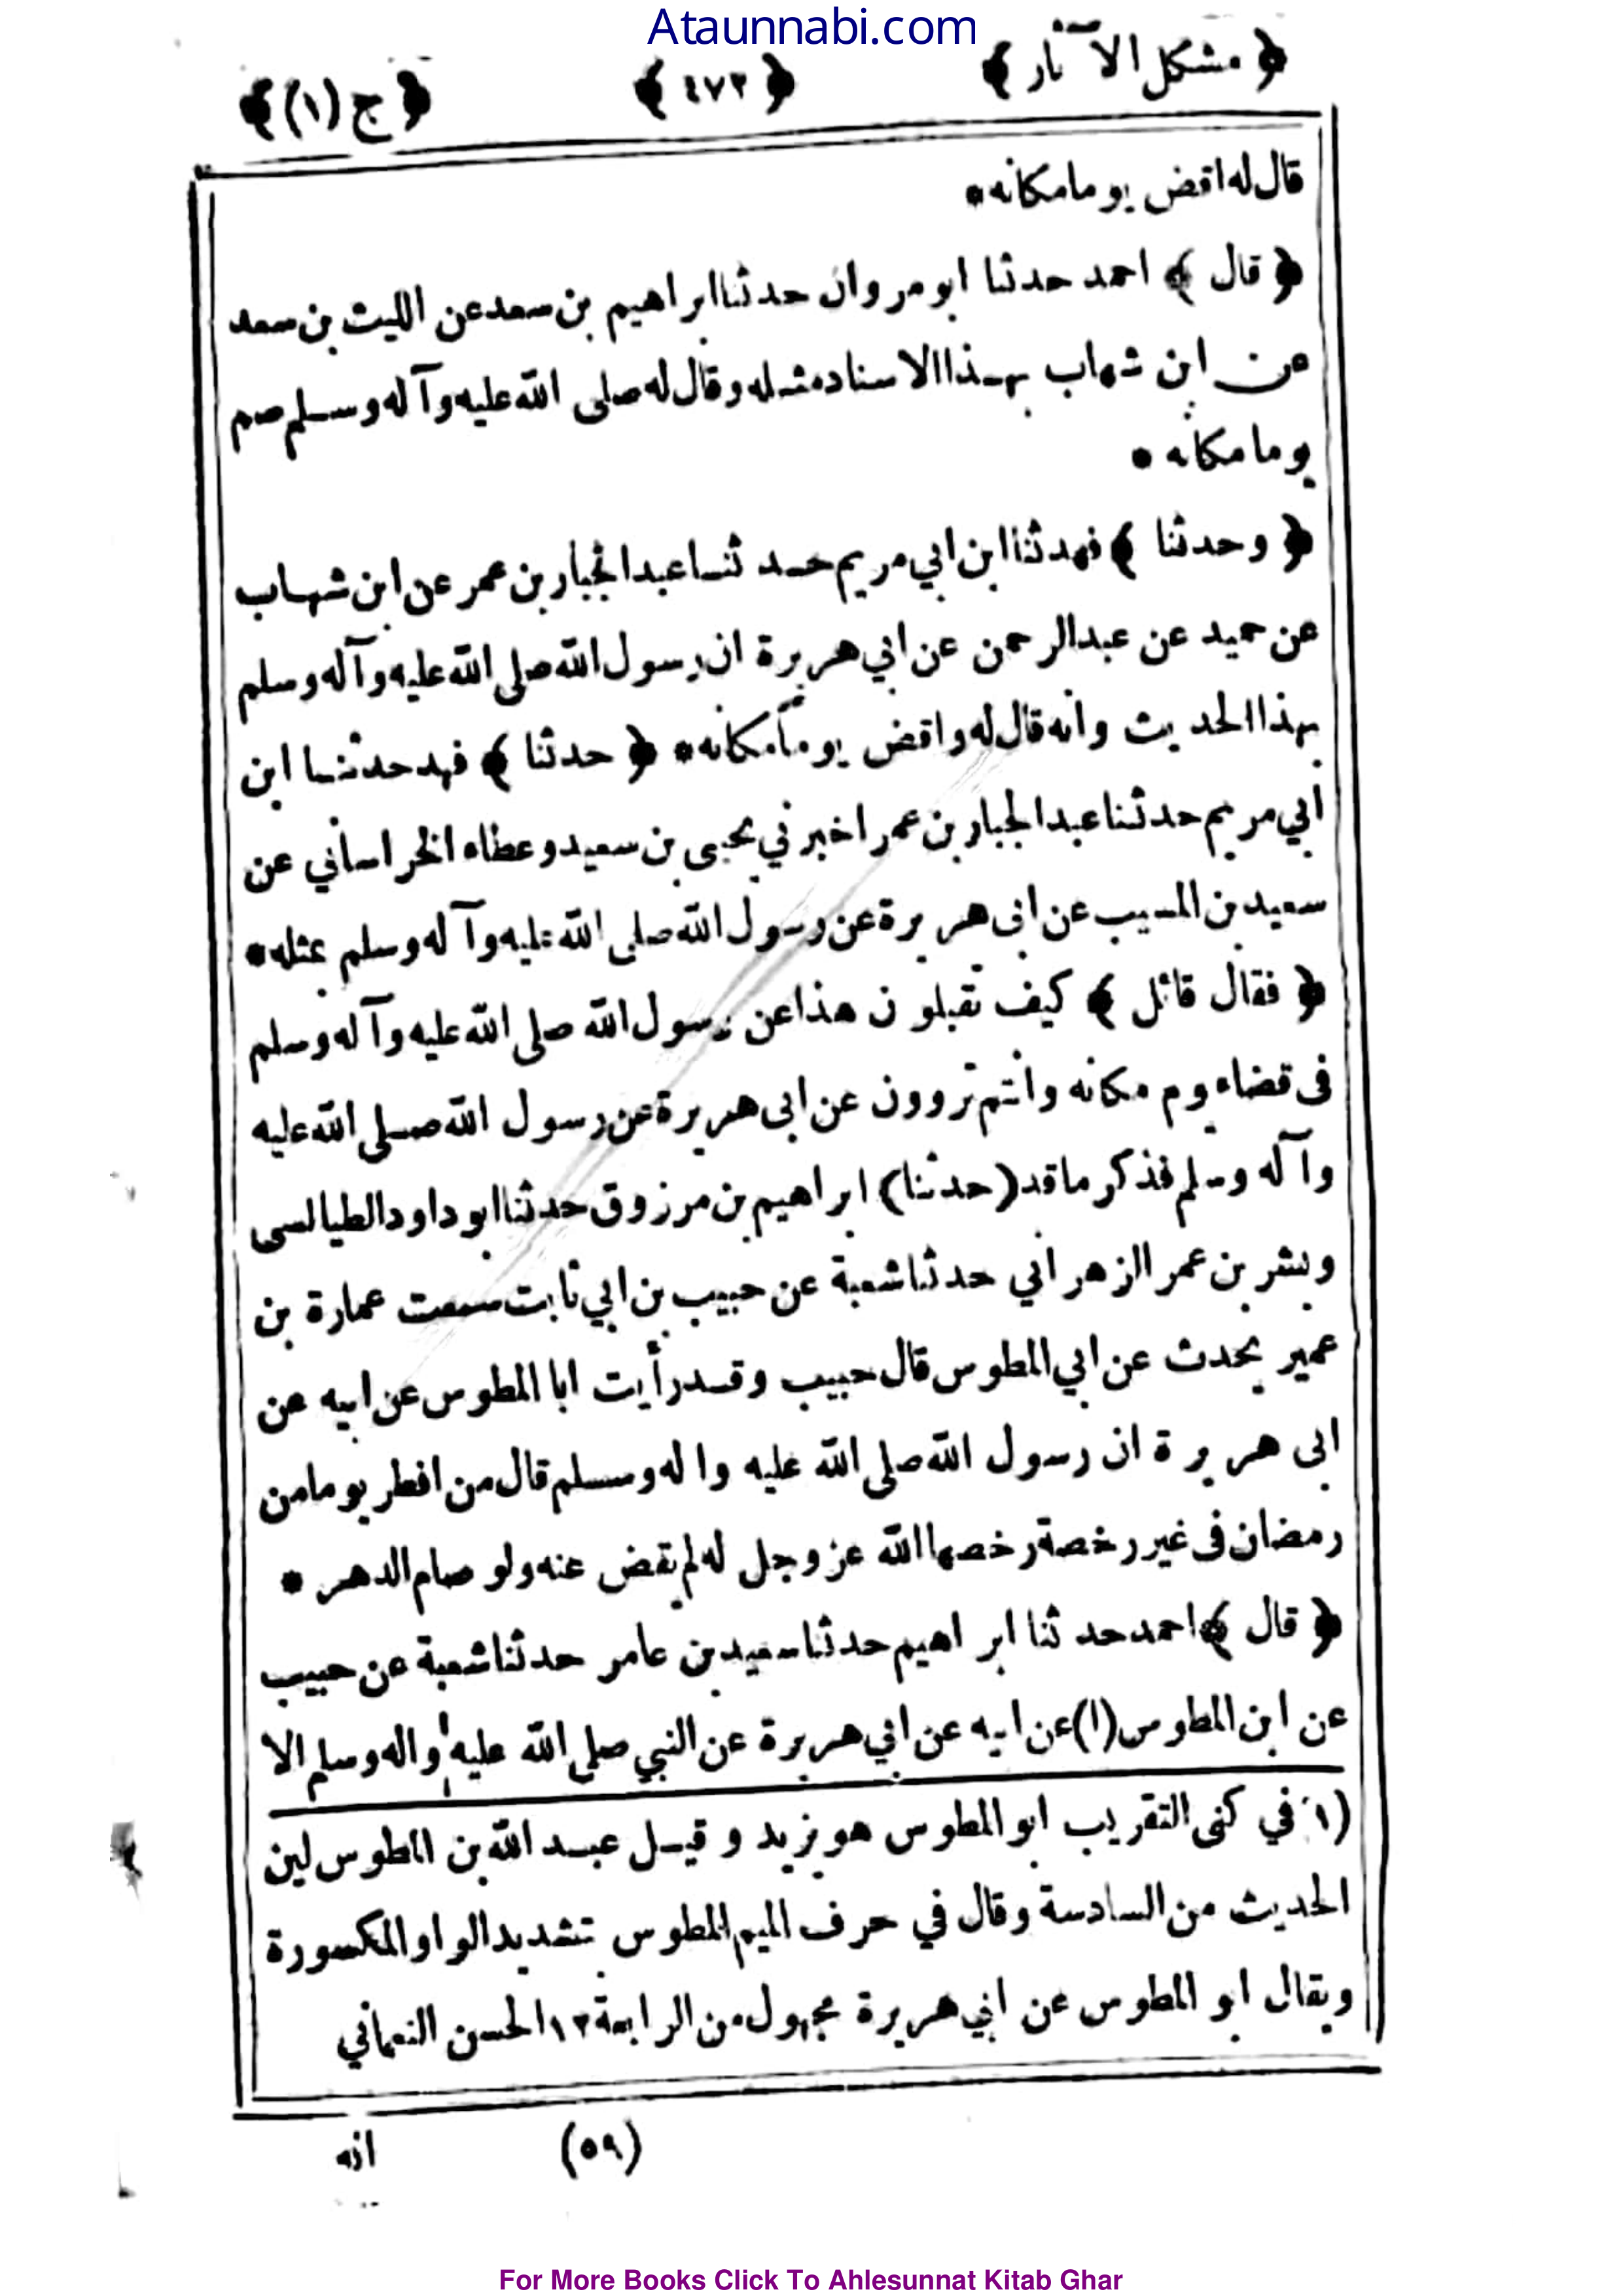 Ataunnabi.com
﴿ مشكل الآثار ﴾ ﴿ ٤٧٣ ﴾ ﴿ ج (١) ﴾
قال له اقض يوما مكانه *
﴿ قال ﴾ احمد حدثنا ابو مروان حدثنا ابراهيم بن سعد عن الليث بن سعد
عن ابن شهاب بهذا الاسناد مثله وقال له صلى الله عليه وآله وسلم صم
يوما مكانه *
﴿ وحدثنا ﴾ فهد ثنا ابن ابي مريم حدثنا عبد الجبار بن عمر عن ابن شهاب
عن حميد عن عبد الرحمن عن ابي هريرة ان رسول الله صلى الله عليه وآله وسلم
بهذا الحديث وانه قال له واقض يوما مكانه * ﴿ حدثنا ﴾ فهد حدثنا ابن
ابي مريم حدثنا عبد الجبار بن عمر اخبرني يحيى بن سعيد وعطاء الخراساني عن
سعيد بن المسيب عن ابى هريرة عن رسول الله صلى الله عليه وآله وسلم بمثله *
﴿ فقال قائل ﴾ كيف تقبلون هذا عن رسول الله صلى الله عليه وآله وسلم
فى قضاء يوم مكانه وانتم تروون عن ابى هريرة عن رسول الله صلى الله عليه
وآله وسلم فذكر ما قد (حدثنا) ابراهيم بن مرزوق حدثنا ابو داود الطيالسى
وبشر بن عمر الزهراني حدثنا شعبة عن حبيب بن ابي ثابت سمعت عمارة بن
عمير يحدث عن ابي المطوس قال حبيب وقد رأيت ابا المطوس عن ابيه عن
ابى هريرة ان رسول الله صلى الله عليه واله وسلم قال من افطر يوما من
رمضان فى غير رخصة رخصها الله عز وجل له لم يقض عنه ولو صام الدهر *
﴿ قال ﴾ احمد حدثنا ابراهيم حدثنا سعيد بن عامر حدثنا شعبة عن حبيب
عن ابن المطوس (١) عن ابيه عن ابي هريرة عن النبي صلى الله عليه واله وسلم الا
(١) في كنى التقريب ابو المطوس هو يزيد وقيل عبد الله بن المطوس لين
الحديث من السادسة وقال في حرف الميم المطوس بتشديد الواو المكسورة
ويقال ابو المطوس عن ابي هريرة مجهول من الرابعة ١٢ الحسن النعماني
(٥٩) انه
For More Books Click To Ahlesunnat Kitab Ghar